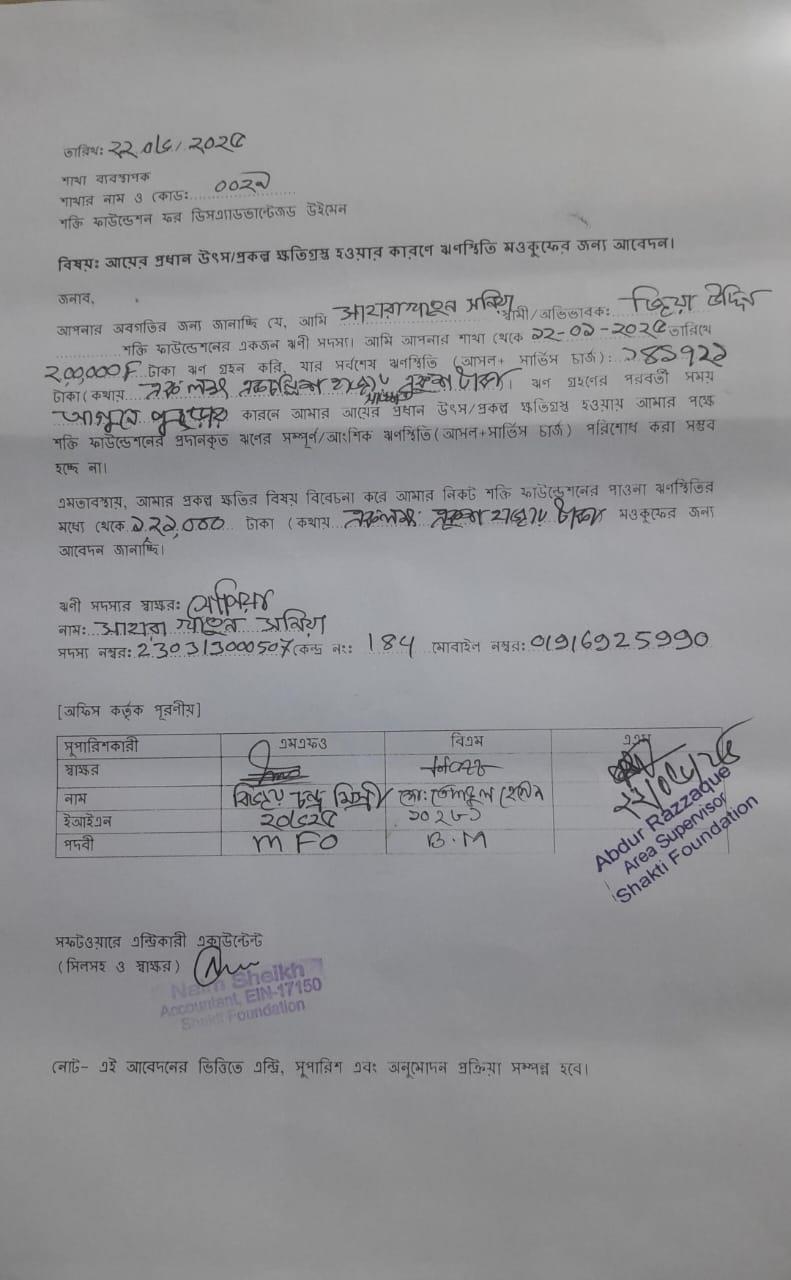 তারিখ: ২২/০৬/২০২৫
শাখা ব্যবস্থাপক
শাখার নাম ও কোড: ००२৯
শক্তি ফাউন্ডেশন ফর ডিসএ্যাডভান্টেজড উইমেন
বিষয়ঃ আয়ের প্রধান উৎস/প্রকল্প ক্ষতিগ্রস্থ হওয়ার কারণে ঋণস্থিতি মওকুফের জন্য আবেদন।
জনাব,
আপনার অবগতির জন্য জানাচ্ছি যে, আমি স্বামী/অভিভাবক: উদ্দিন
শক্তি ফাউন্ডেশনের একজন ঋণী সদস্য। আমি আপনার শাখা থেকে ১২-০১-২০২৫ তারিখে
২,০০,০০০ টাকা ঋণ গ্রহন করি, যার সর্বশেষ ঋণস্থিতি (আসল+ সার্ভিস চার্জ):
টাকা (কথায় ঋণ গ্রহণের পরবর্তী সময়
আগুনে কারনে আমার আয়ের প্রধান উৎস/প্রকল্প ক্ষতিগ্রস্থ হওয়ায় আমার পক্ষে
শক্তি ফাউন্ডেশনের প্রদানকৃত ঋণের সম্পূর্ণ/আংশিক ঋণস্থিতি(আসল+সার্ভিস চার্জ) পরিশোধ করা সম্ভব
হচ্ছে না।
এমতাবস্থায়, আমার প্রকল্প ক্ষতির বিষয় বিবেচনা করে আমার নিকট শক্তি ফাউন্ডেশনের পাওনা ঋণস্থিতির
মধ্যে থেকে টাকা (কথায় মওকুফের জন্য
আবেদন জানাচ্ছি।
ঋণী সদস্যর স্বাক্ষর:
নাম:
সদস্য নম্বর: 230313000507 কেন্দ্র নং: 184 মোবাইল নম্বর: 01916925990
[অফিস কর্তৃক পূরণীয়]
সুপারিশকারী এমএফও বিএম এএস
স্বাক্ষর
নাম চন্দ্র মিস্ত্রী মো:
ইআইএন ২০৬২৫
পদবী MFO B.M
Abdur Razzaque
Area Supervisor
Shakti Foundation
সফটওয়ারে এন্ট্রিকারী একাউন্টেন্ট
(সিলসহ ও স্বাক্ষর)
Naim Sheikh
Accountant, EIN-17150
Shakti Foundation
নোট- এই আবেদনের ভিত্তিতে এন্ট্রি, সুপারিশ এবং অনুমোদন প্রক্রিয়া সম্পন্ন হবে।